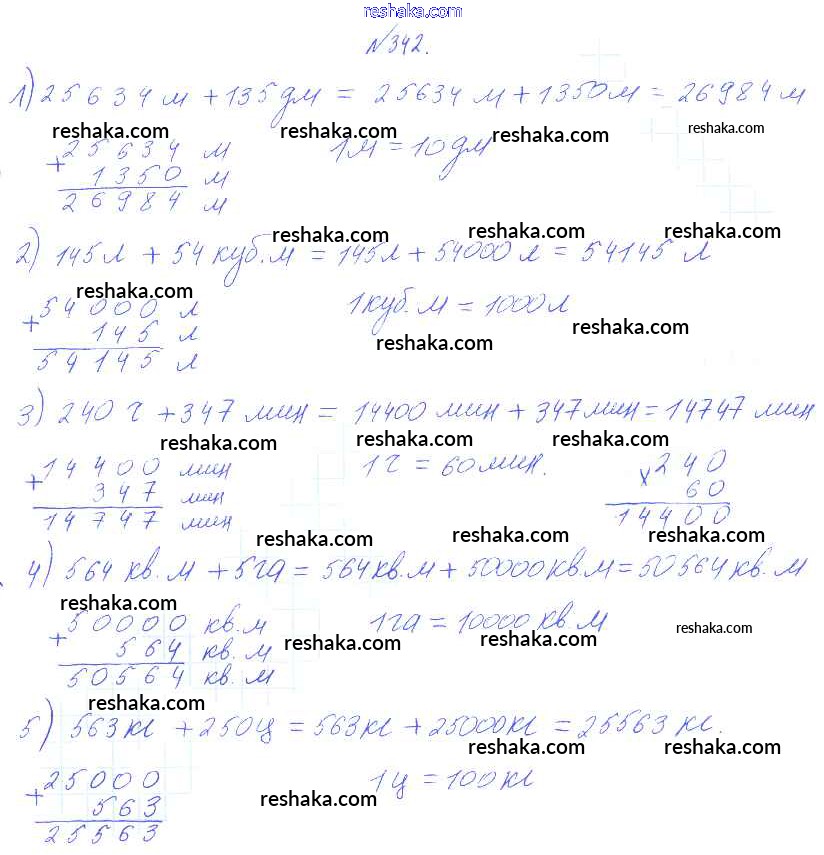 reshaka.com
№342.
1) 25634 м + 135 дм = 25634 м + 1350 м = 26984 м
reshaka.com reshaka.com reshaka.com reshaka.com
+ 25634 м 1м = 10 дм
1350 м
26984 м
reshaka.com reshaka.com reshaka.com
2) 145 л + 54 куб.м = 145 л + 54000 л = 54145 л
reshaka.com
+ 54000 л 1 куб.м = 1000 л
145 л reshaka.com reshaka.com
54145 л
3) 240 ч + 347 мин = 14400 мин + 347 мин = 14747 мин
reshaka.com reshaka.com reshaka.com
+ 14400 мин 1 ч = 60 мин. × 240
347 мин 60
14747 мин 14400
reshaka.com reshaka.com reshaka.com
4) 564 кв.м + 5 га = 564 кв.м + 50000 кв.м = 50564 кв.м
reshaka.com
+ 50000 кв.м 1 га = 10000 кв.м
564 кв.м reshaka.com reshaka.com reshaka.com
50564 кв.м
reshaka.com
5) 563 кг + 250 ц = 563 кг + 25000 кг = 25563 кг.
reshaka.com reshaka.com
+ 25000 1 ц = 100 кг
563 reshaka.com
25563